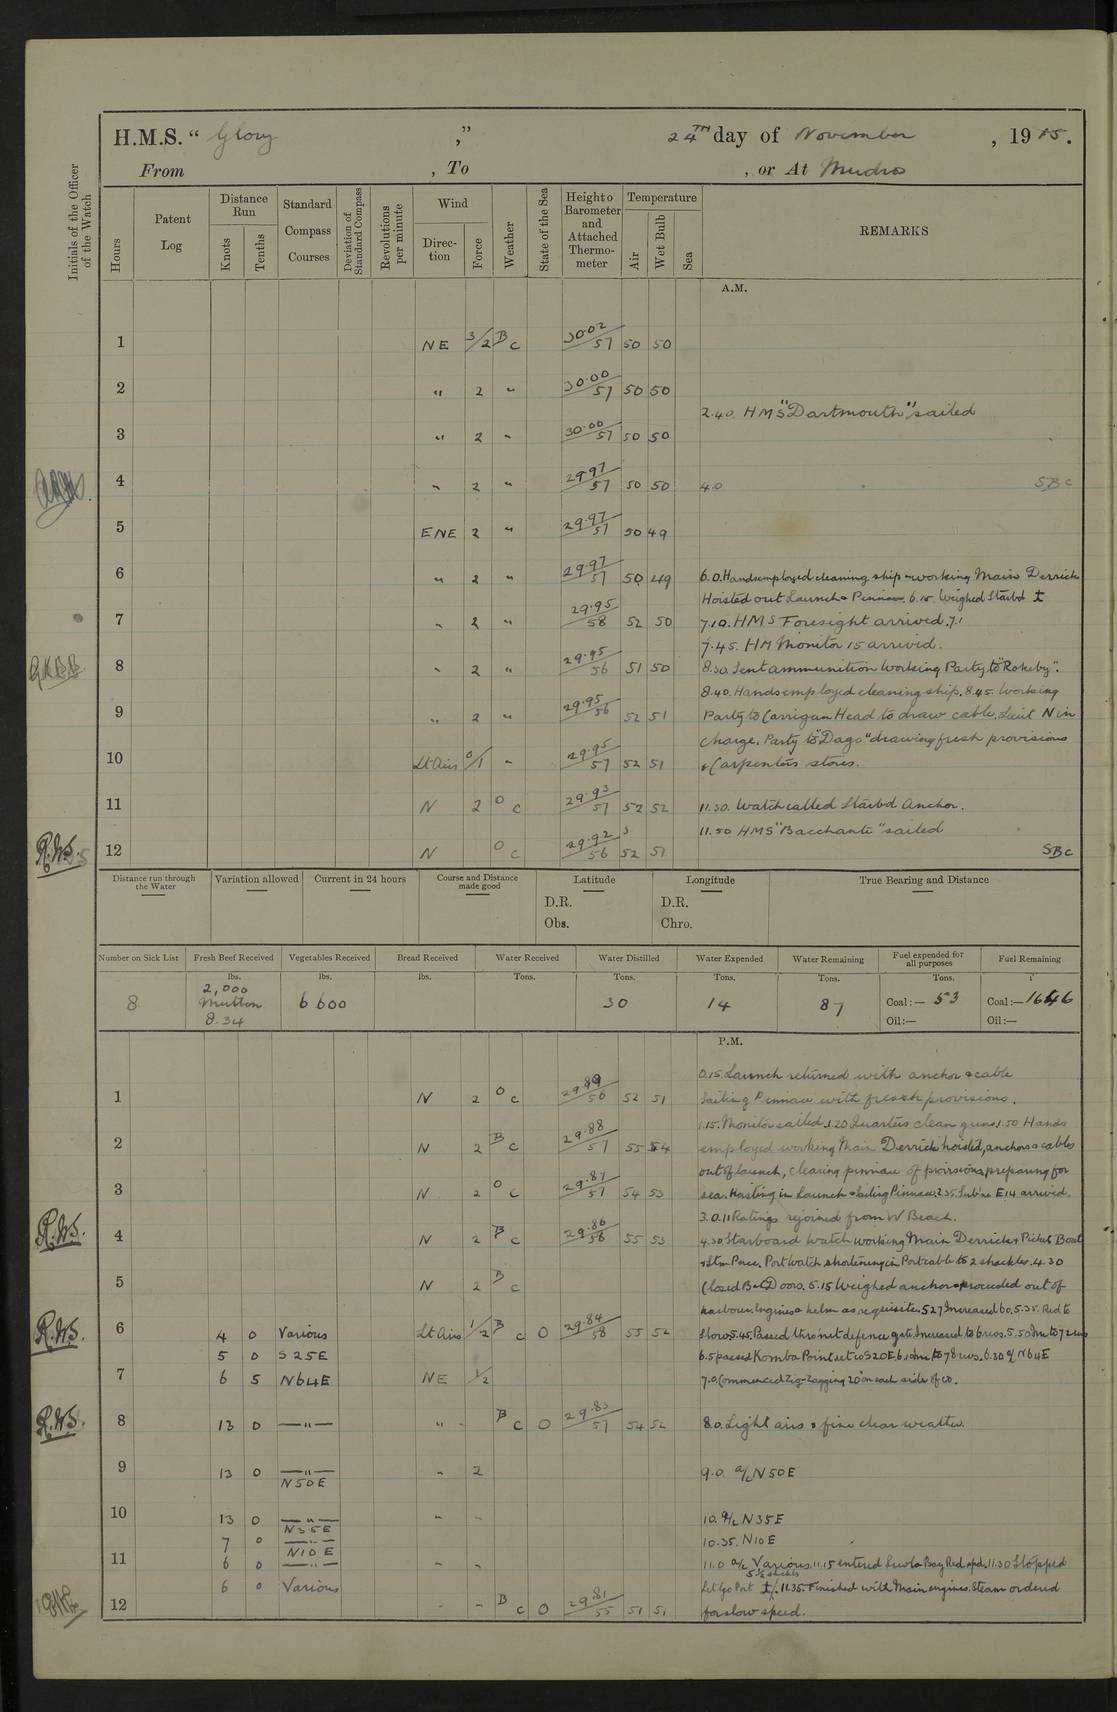 H.M.S. " Glory " 24TH day of November , 1915.
From , To , or At Mudros
Initials of the Officer of the Watch
Hours
Patent Log
Distance Run
Knots
Tenths
Standard Compass Courses
Deviation of Standard Compass
Revolutions per minute
Wind
Direction
Force
Weather
State of the Sea
Height o Barometer and Attached Thermometer
Temperature
Air
Wet Bulb
Sea
REMARKS
A.M.
1 NE 3/2 B C 30.02/57 50 50
2 " 2 " 30.00/57 50 50
2.40. HMS "Dartmouth" sailed
3 " 2 " 30.00/57 50 50
4 " 2 " 29.97/57 50 50 4.0 SBC
5 ENE 2 " 29.97/57 50 49
6 " 2 " 29.97/57 50 49 6.0. Hands employed cleaning ship & working Main Derrick
Hoisted out Launch & Pinnace. 6.15 Weighed Starbd ⚓
7 " 2 " 29.95/58 52 50 7.10. HMS Foresight arrived.
7.45. HM Monitor 15 arrived.
8 " 2 " 29.95/56 51 50 8.30. Sent ammunition Working Party to "Rokeby".
8.40. Hands employed cleaning ship. 8.45. Working
9 " 2 " 29.95/56 52 51 Party to Carrigan Head to draw cable, Lieut N in
charge. Party to "Dago" drawing fresh provisions
10 Lt Airs 0/1 " 29.95/57 52 51 & Carpenters stores.
11 N 2 O C 29.93/57 52 52 11.30. Watch called Starbd Anchor.
11.50 HMS "Bacchante" sailed
R.W.S.
12 N O C 29.92/56 52 51 SBC
Distance run through the Water
Variation allowed
Current in 24 hours
Course and Distance made good
Latitude
D.R.
Obs.
Longitude
D.R.
Chro.
True Bearing and Distance
Number on Sick List
Fresh Beef Received
Vegetables Received
Bread Received
Water Received
Water Distilled
Water Expended
Water Remaining
Fuel expended for all purposes
Fuel Remaining
lbs. lbs. lbs. Tons. Tons. Tons. Tons. Tons.
8
2,000
Mutton
834
6600
30
14
87
Coal:— 53
Oil:—
Coal:— 1646
Oil:—
P.M.
0.15. Launch returned with anchor & cable
1 N 2 O C 29.89/56 52 51 Sailing Pinnace with fresh provisions.
1.15. Monitor sailed. 1.20 Quarters clean guns. 1.50 Hands
2 N 2 B C 29.88/57 55 54 employed working Main Derrick hoisted, anchors & cables
out of launch, clearing pinnace of provisions, preparing for
3 N 2 O C 29.87/57 54 53 sea. Hoisting in Launch & Sailing Pinnace. 2.35. Sub'ne E14 arrived.
3.0. 11 Ratings rejoined from W Beach.
R.W.S.
4 N 2 B C 29.86/58 55 53 4.30 Starboard Watch working Main Derrick & Picket Boat
& Stm Pnce. Port Watch shortening in Port cable to 2 shackles. 4.30
5 N 2 B C Closed B & C Doors. 5.15 Weighed anchor & proceeded out of
harbour. Engines & helm as requisite. 5.27 Increased 60. 5.35. Red to
R.W.S.
6 4 0 Various Lt Airs 1/2 B C O 29.84/58 55 52 Slow 5.45. Passed thro net defence gate. Increased to 6 revs. 5.50 Inc to 72 revs
5 0 S25E 6.5 passed Komba Point set co S20E. 6.10 Inc to 78 revs. 6.30 % N64E
7 6 5 N64E NE 1/2 7.0. Commenced Zig-Zagging 20° on each side of co.
R.W.S.
8 13 0 —"— " B C O 29.83/57 54 52 8.0. Light airs & fine clear weather.
9 13 0 —"— " 2 9.0. a/c N50E
N50E
10 13 0 —"— " " 10. a/c N35E
N35E
7 0 —"— 10.35. N10E
N10E
11 6 0 —"— " " 11.0 a/c Various. 11.15 entered Suvla Bay Red spd. 11.30 Stopped
5½ shackles
6 0 Various Let Go Port ⚓. 11.35. Finished with Main engines. Steam ordered
12 " " B C O 29.81/55 51 51 for slow speed.